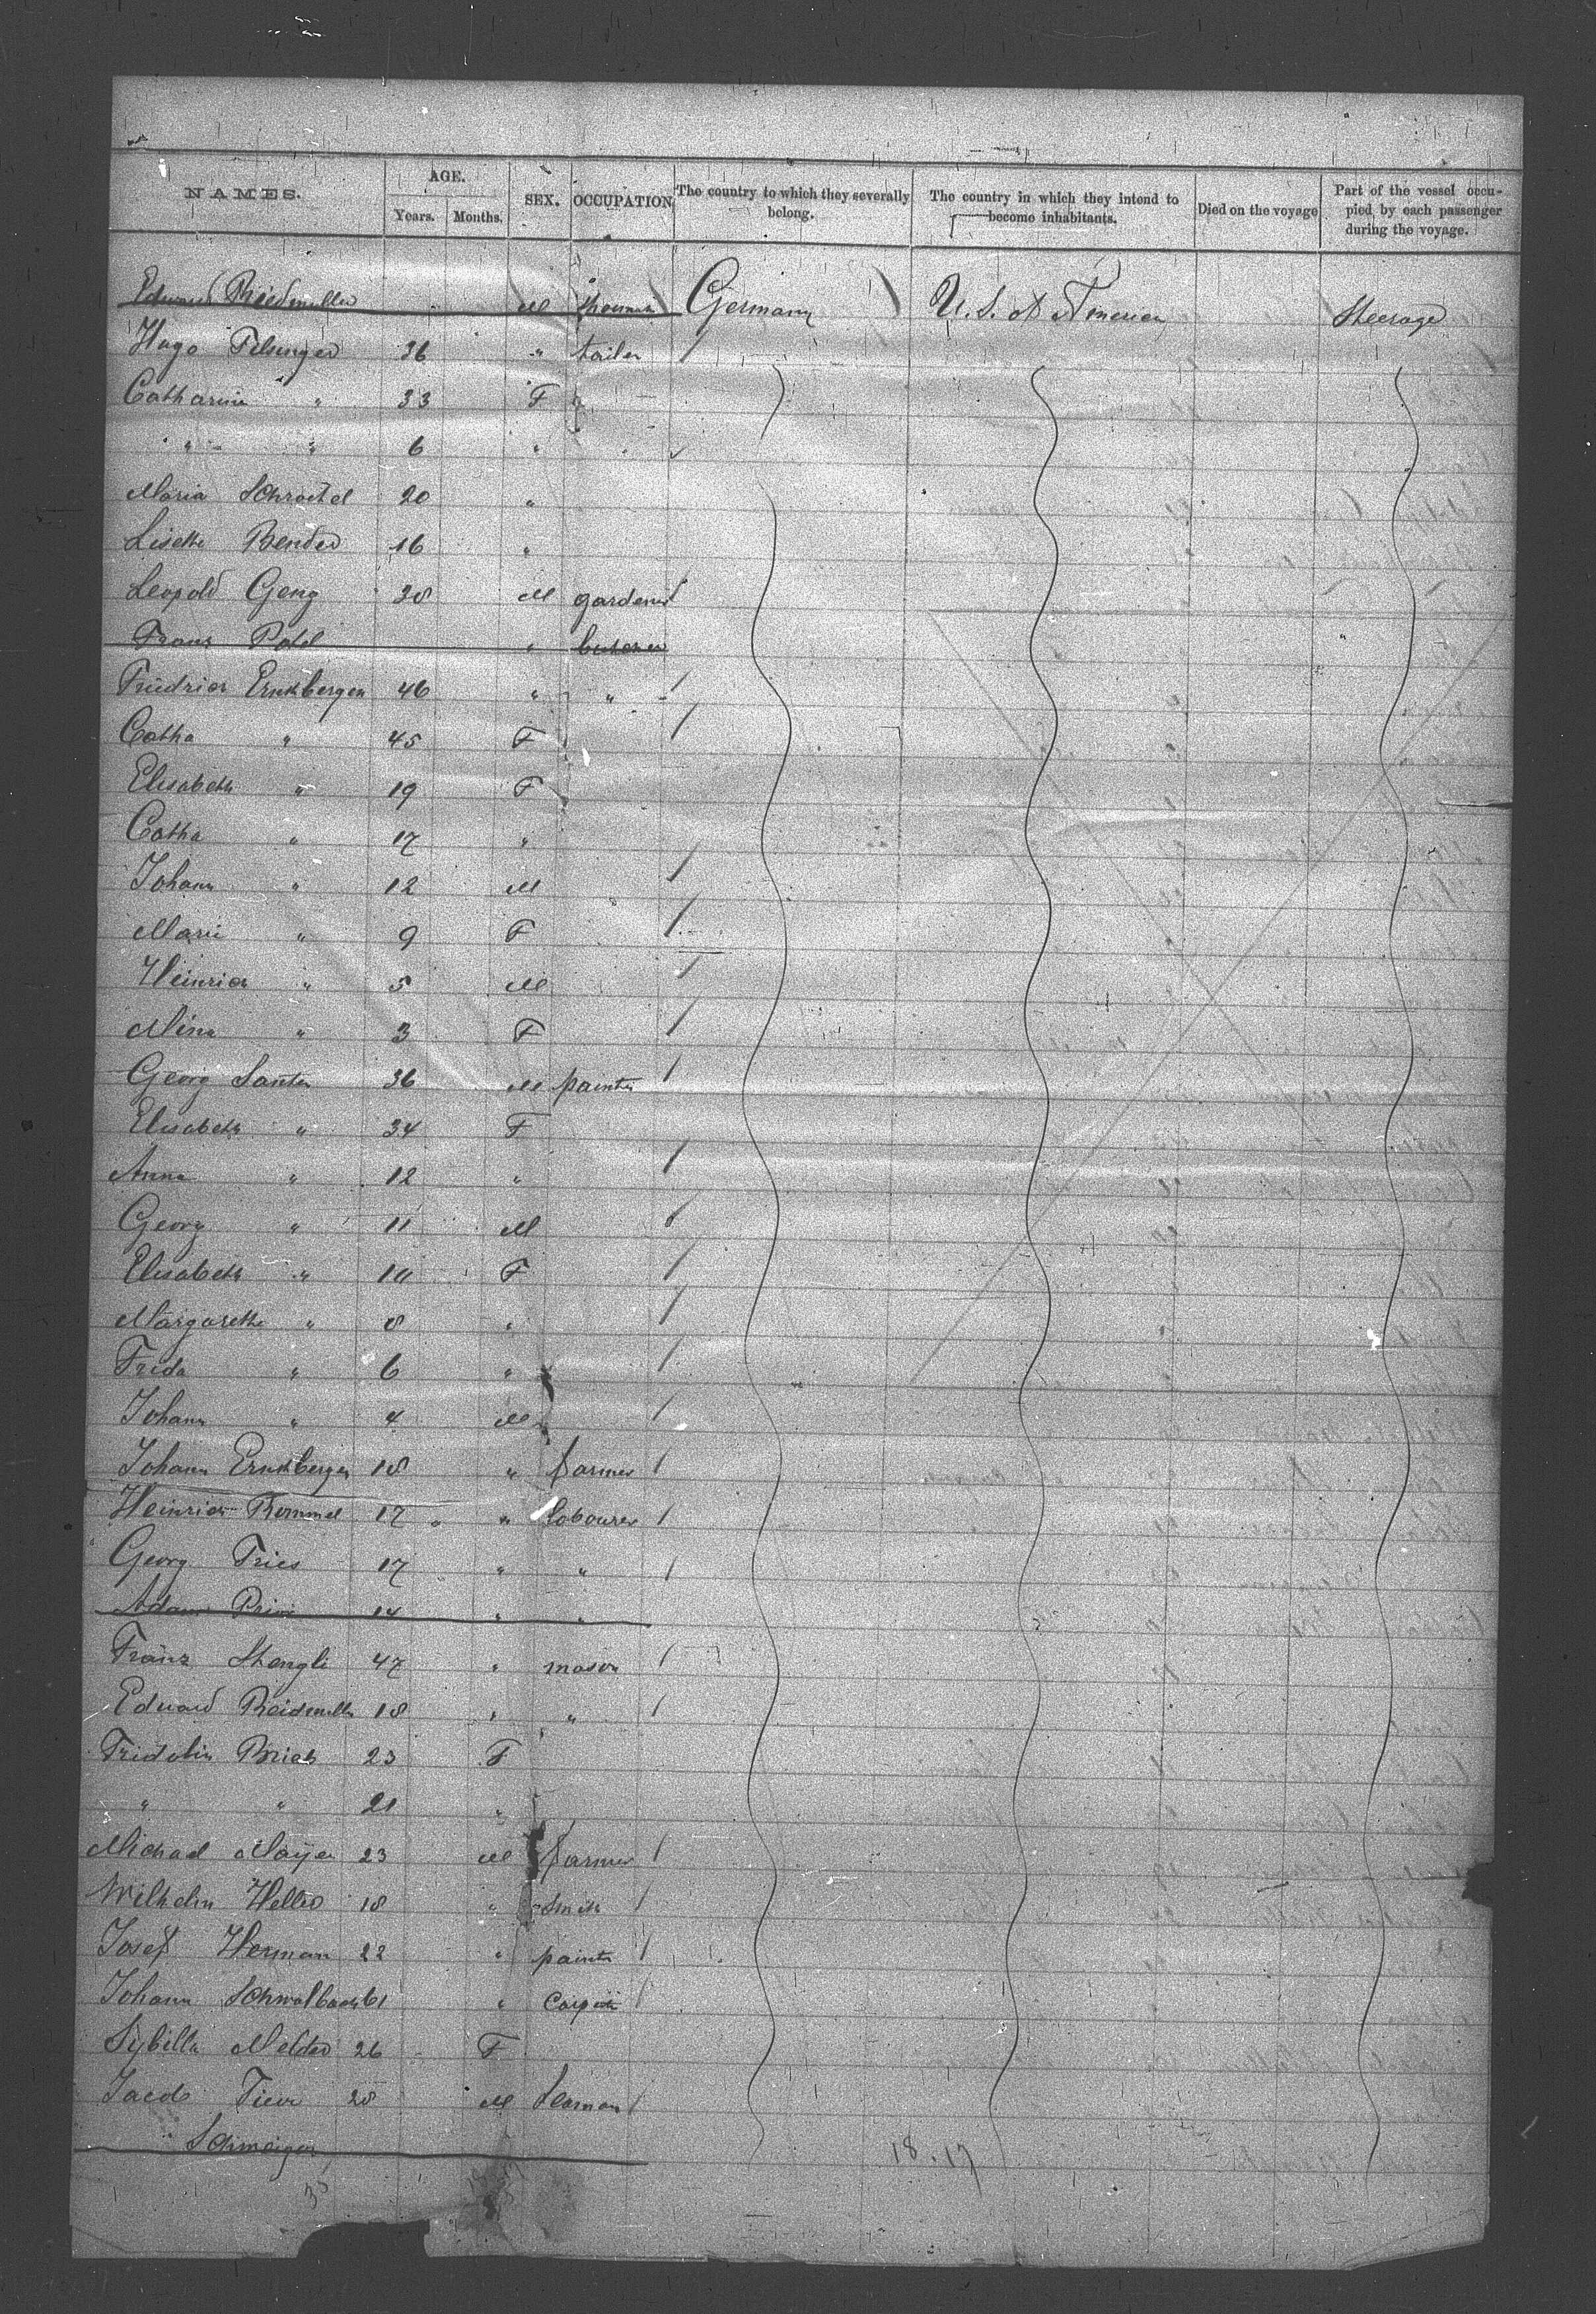 NAMES. AGE. Years. Months. SEX. OCCUPATION The country to which they severally belong. The country in which they intend to become inhabitants. Died on the voyage Part of the vessel occupied by each passenger during the voyage.
Edward Riedmuller M Germany U. S. of America Steerage
Hugo Felsinger 36 " tailor
Catharina " 33 F
" " 6 "
Maria 20 "
Lisette Bender 16 "
Leopold Geng 28 M gardener
Franz Pohl " butcher
Friedrich Ernstberger 46 " "
Catha " 45 F
Elisabeth " 19 F
Catha " 17 "
Johann " 12 M
Marie " 9 F
Heinrich " 5 M
Mina " 3 F
Georg Santer 36 M painter
Elisabeth " 34 F
Anna " 12 "
Georg " 11 M
Elisabeth " 10 F
Margarethe " 8 "
Frida " 6 "
Johann " 4 M
Johann Ernstberger 18 " farmer
Heinrich Rommel 17 " labourer
Georg Fries 17 " "
Adam 14 " "
Franz Stengli 47 " mason
Eduard Reidmuller 18 " "
Fridolin 23 F
" " 21 "
Michael Mayer 23 M farmer
Wilhelm Heller 18 " smith
Josef Herman 22 " painter
Johann Schwalbach 61 "
Sybilla Melder 26 F
Jacob 28 M
18.17
35